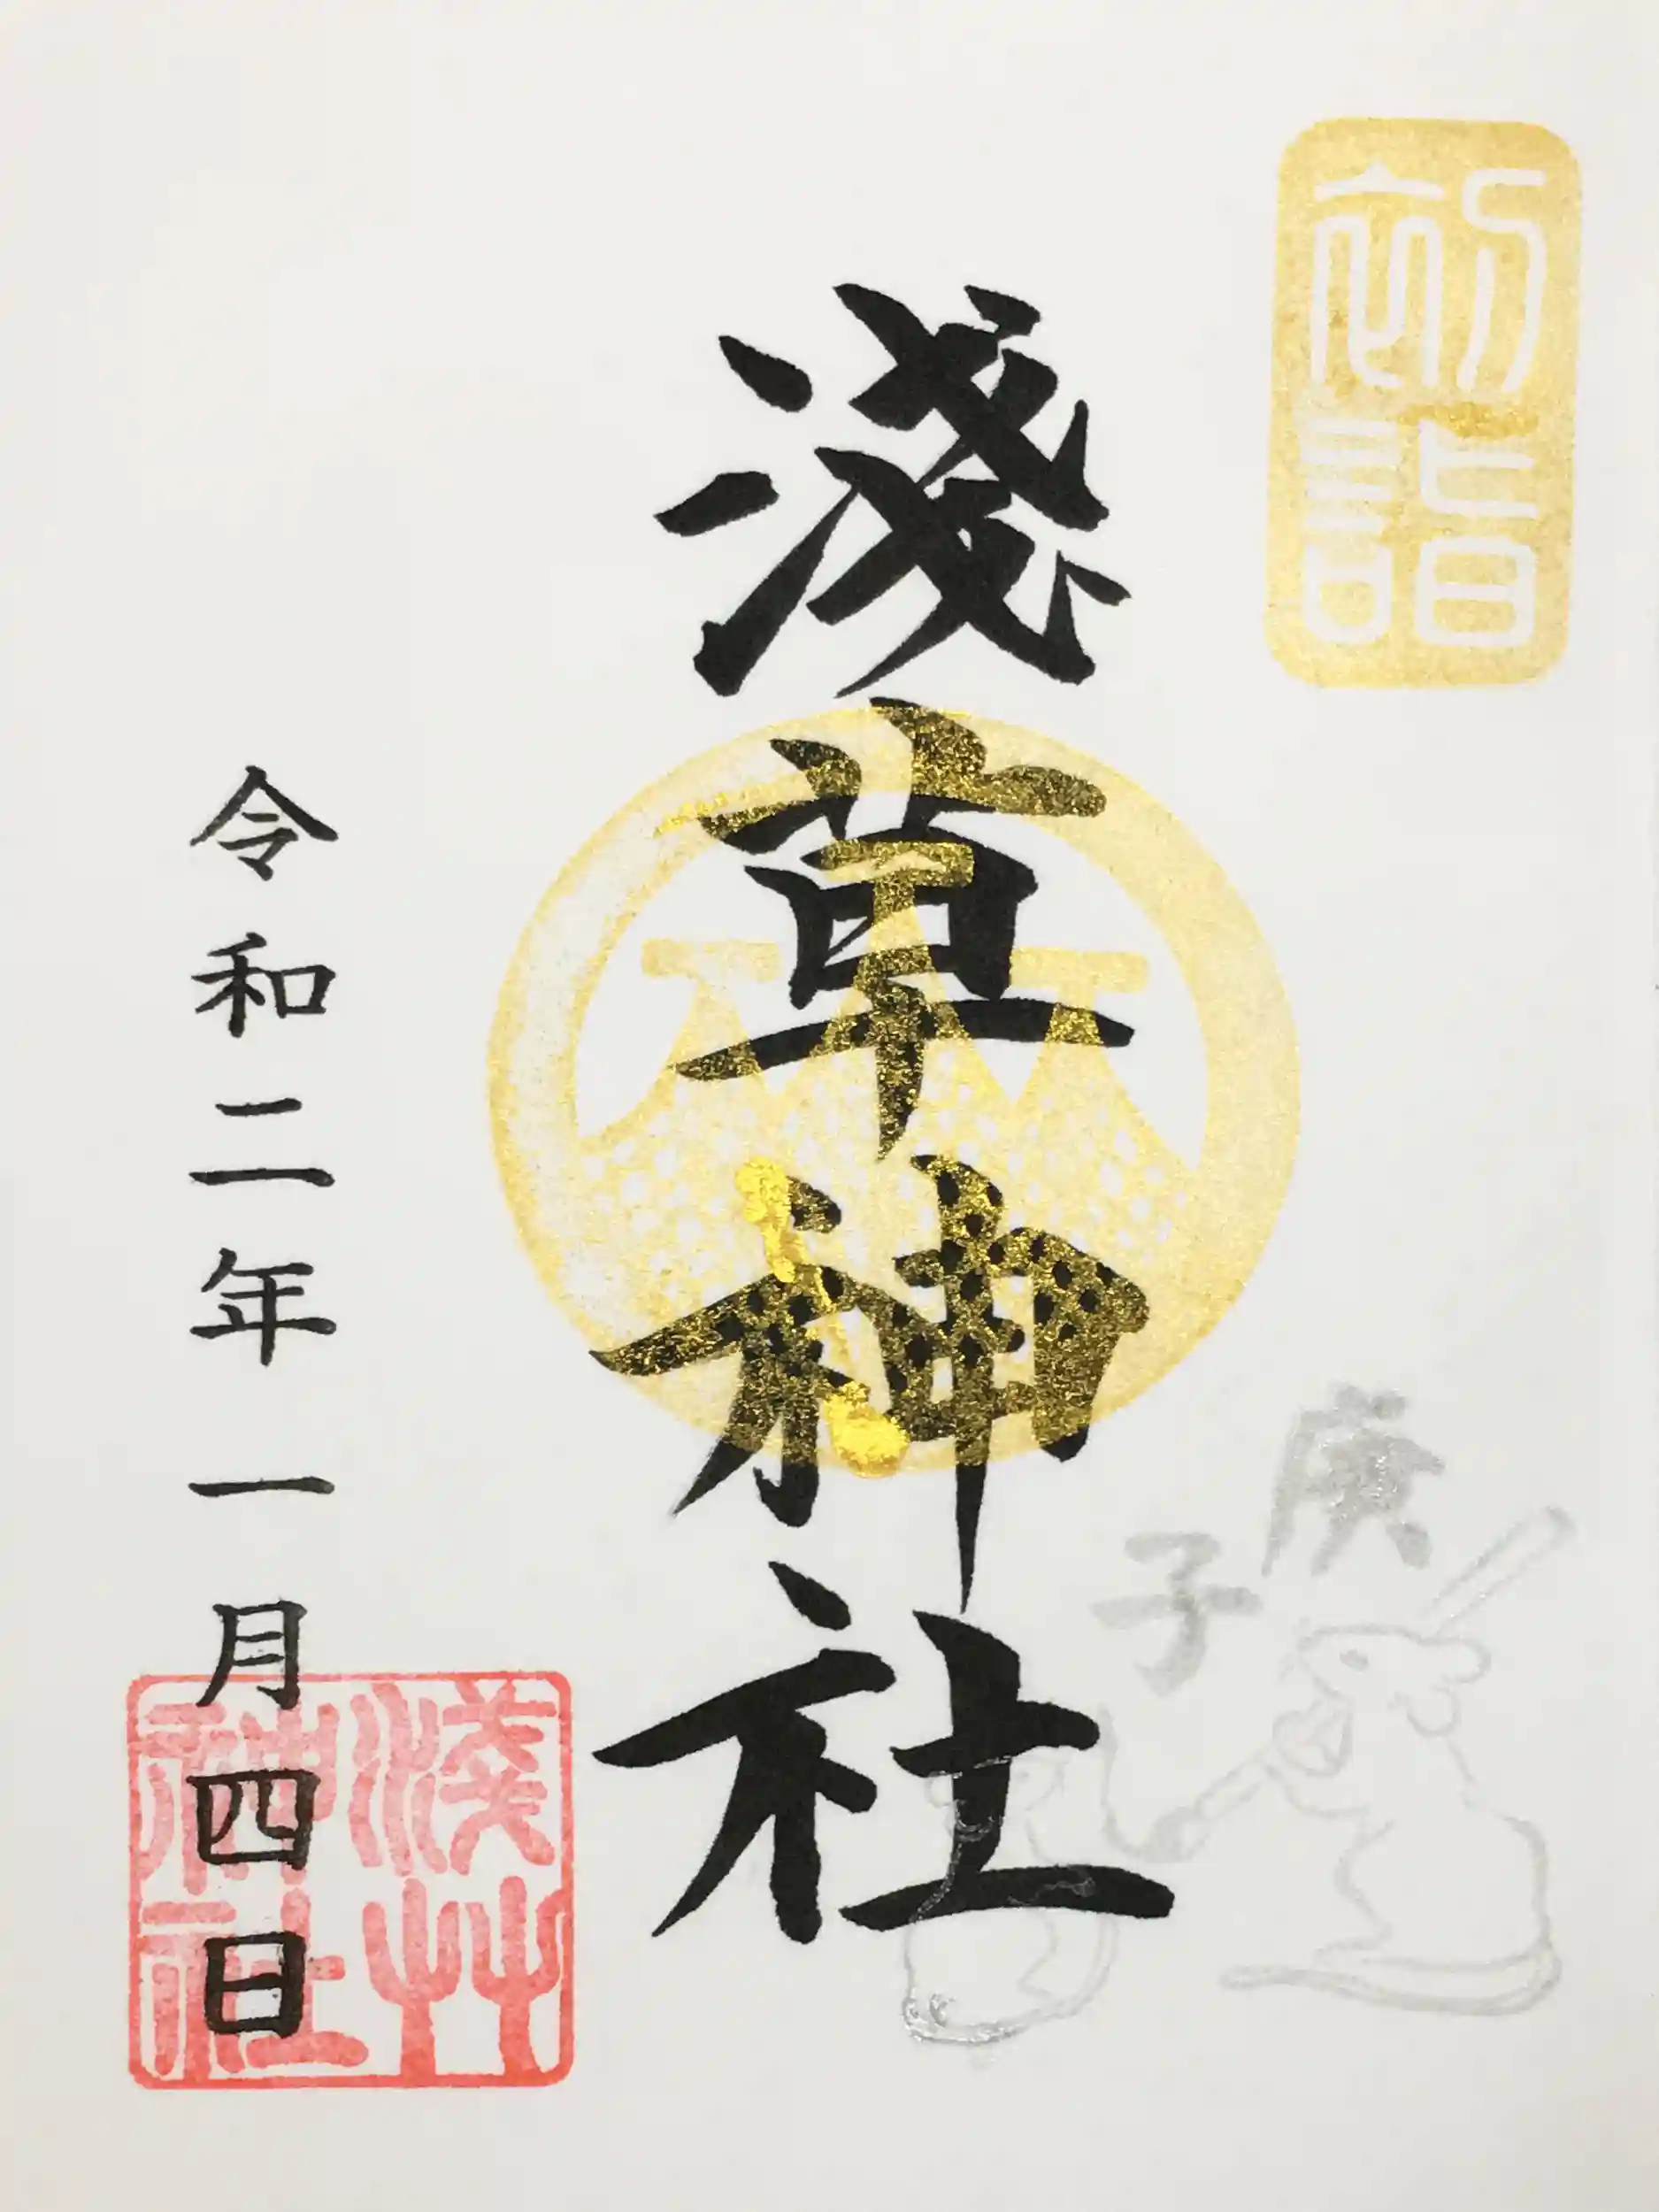 初詣
淺草神社
庚子
令和二年一月四日
淺艸
神社